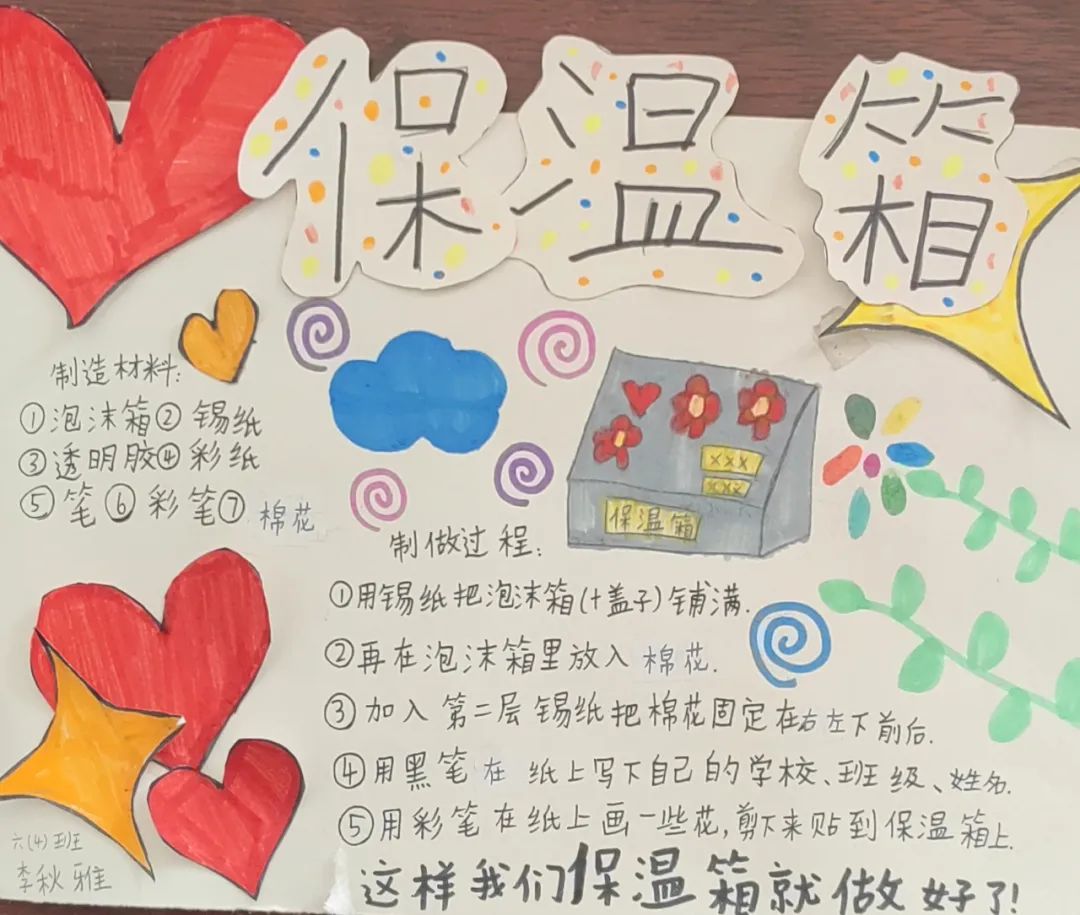 保温箱
制造材料:
①泡沫箱②锡纸
③透明胶④彩纸
⑤笔⑥彩笔⑦棉花
×××
×××
保温箱
制做过程:
①用锡纸把泡沫箱(十盖子)铺满.
②再在泡沫箱里放入棉花.
③加入第二层锡纸把棉花固定在右左下前后.
④用黑笔在纸上写下自己的学校、班级、姓名.
⑤用彩笔在纸上画一些花,剪下来贴到保温箱上.
这样我们保温箱就做好了!
六(4)班
李秋雅